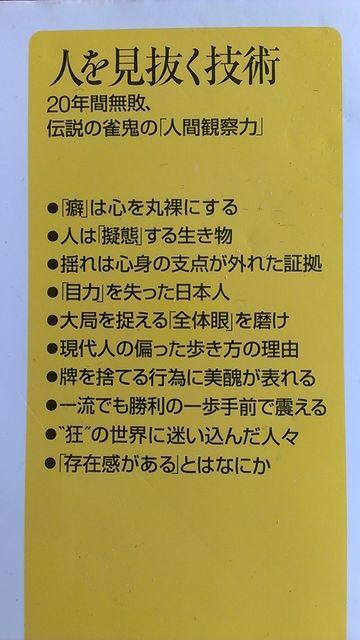 人を見抜く技術
20年間無敗、
伝説の雀鬼の「人間観察力」
●「癖」は心を丸裸にする
●人は「擬態」する生き物
●揺れは心身の支点が外れた証拠
●「目力」を失った日本人
●大局を捉える「全体眼」を磨け
●現代人の偏った歩き方の理由
●牌を捨てる行為に美醜が表れる
●一流でも勝利の一歩手前で震える
●“狂”の世界に迷い込んだ人々
●「存在感がある」とはなにか